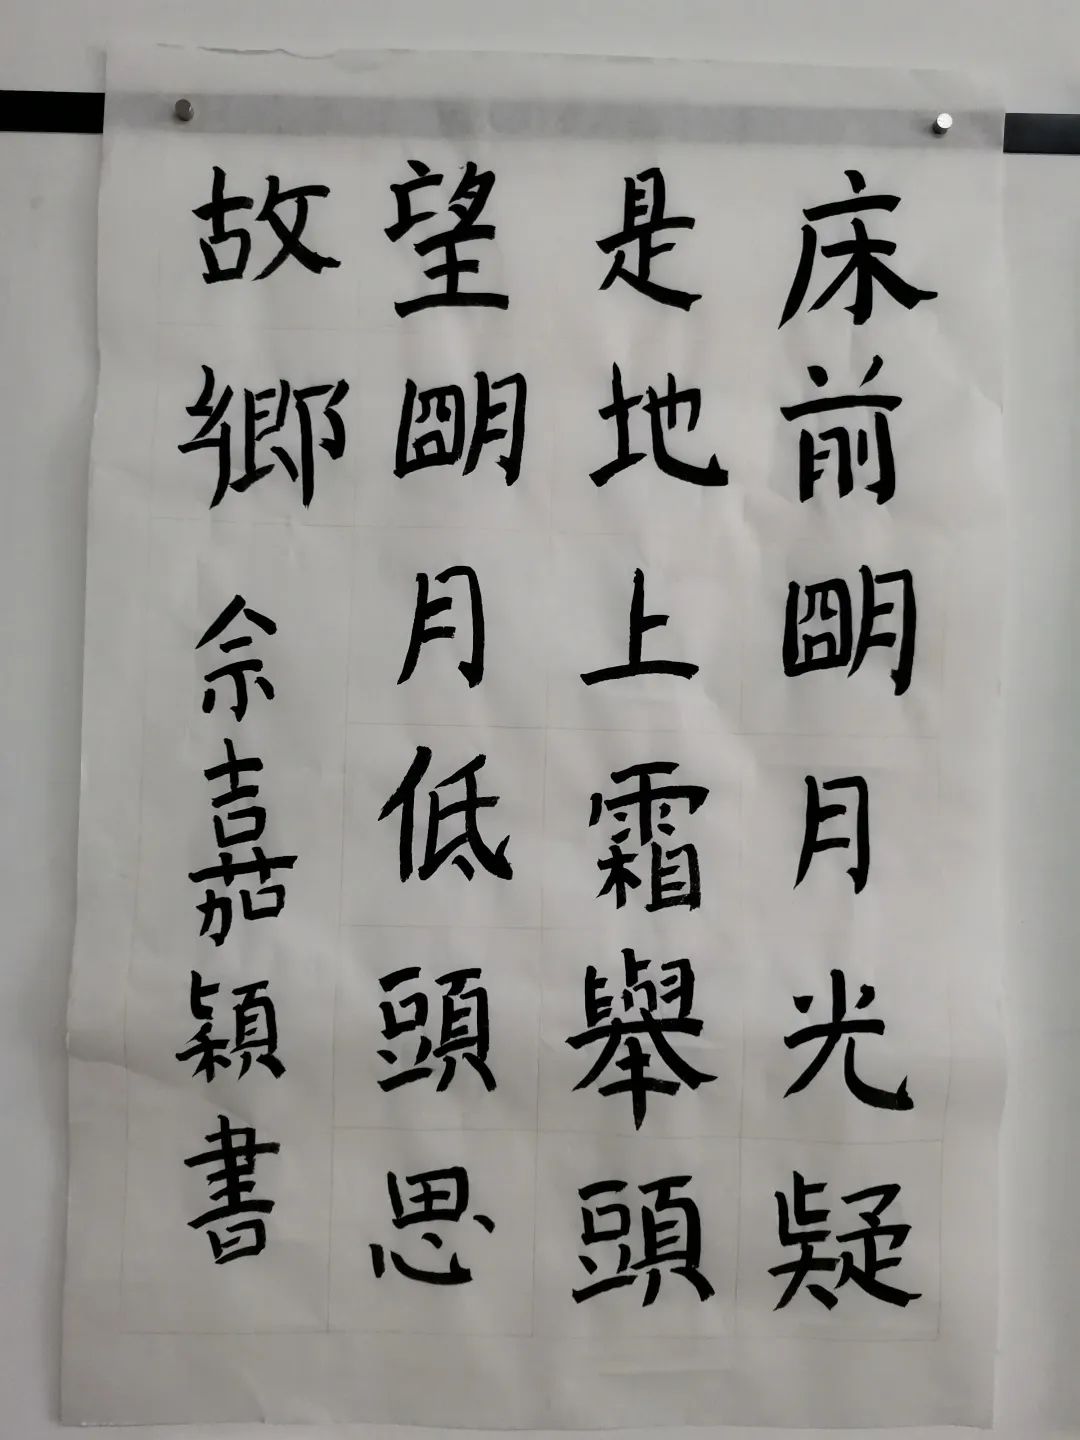 床前朙月光疑
是地上霜舉頭
望朙月低頭思
故鄉
佘嘉穎書